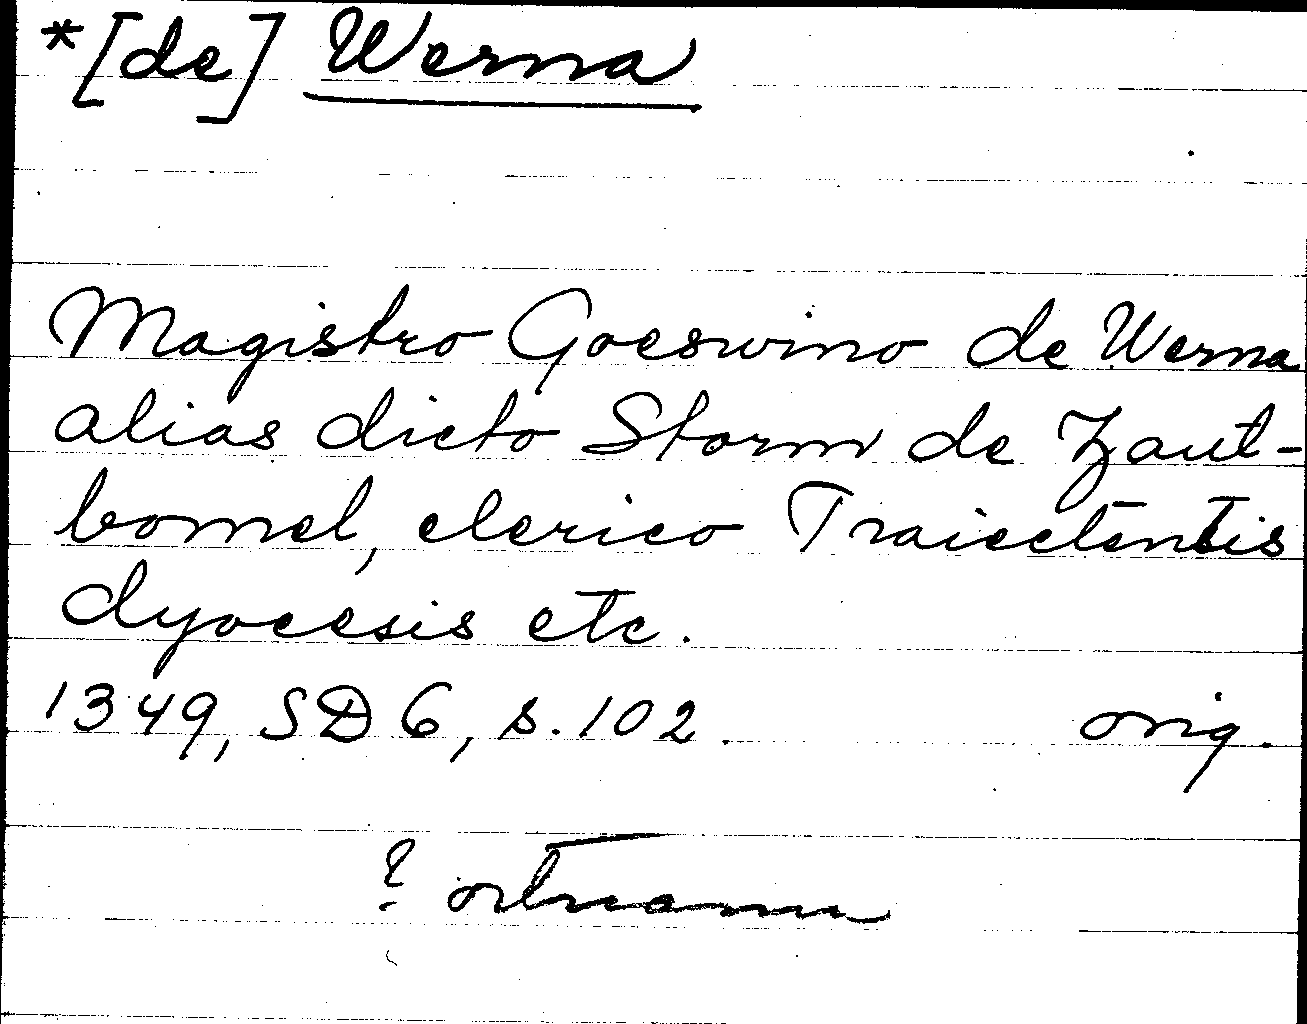 *[de] Werna
Magistro Goeswino de Werna
alias dicto Storm de Zaut-
bomel, clerico Traiectentis
dyocesis etc.
1349, SD 6, s. 102. orig.
? ortnamn